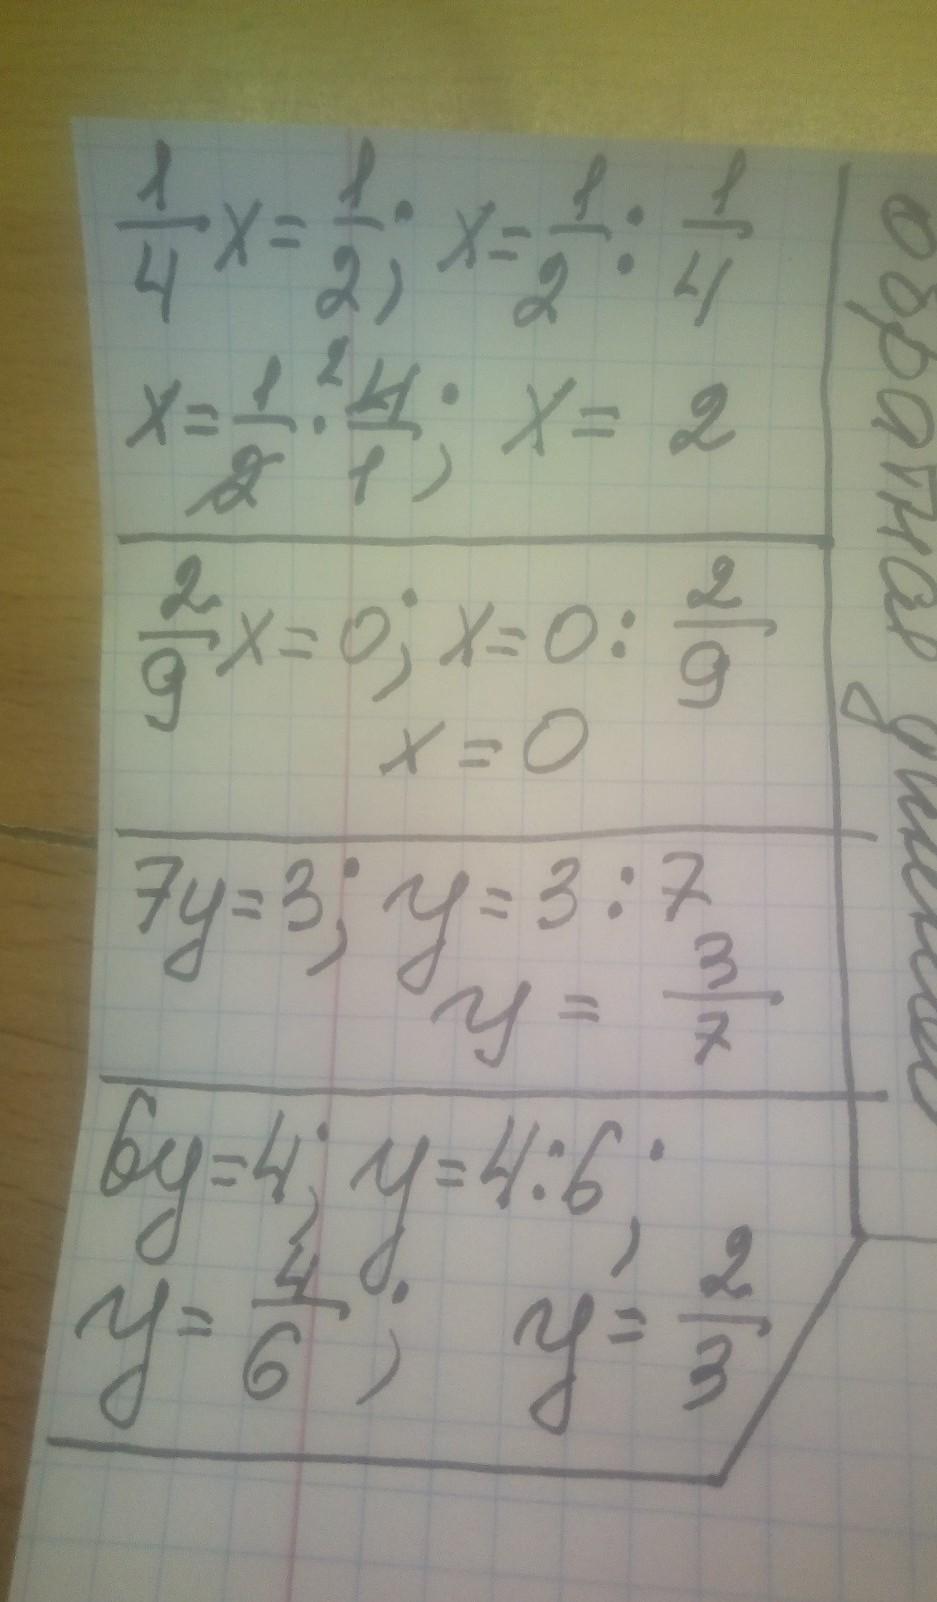 1/4 x = 1/2; x = 1/2 : 1/4
x = 1/2 · ²4/1; x = 2
2/9 x = 0; x = 0 : 2/9
x = 0
7y = 3; y = 3 : 7
y = 3/7
6y = 4; y = 4 : 6;
y = 4/6; y = 2/3
обратная